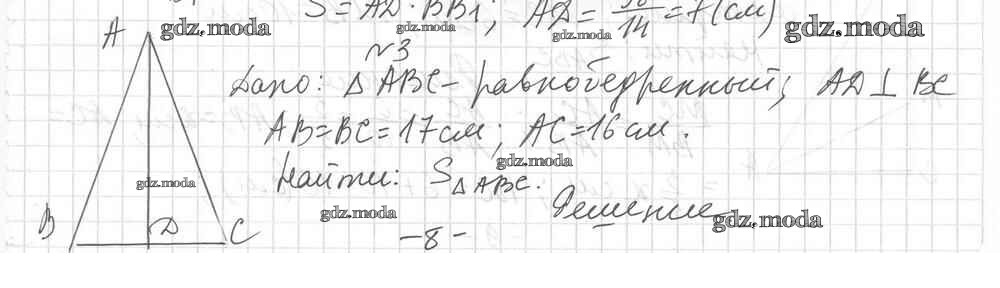 S = AD · BB₁; AD = 98/14 = 7 (см)
A gdz.moda gdz.moda gdz.moda gdz.moda
N3
Дано: △ ABC - равнобедренный; AD ⊥ BC
AB = BC = 17 см; AC = 16 см.
gdz.moda
Найти: S△ABC.
gdz.moda
Решение
gdz.moda gdz.moda
B D C
- 8 -